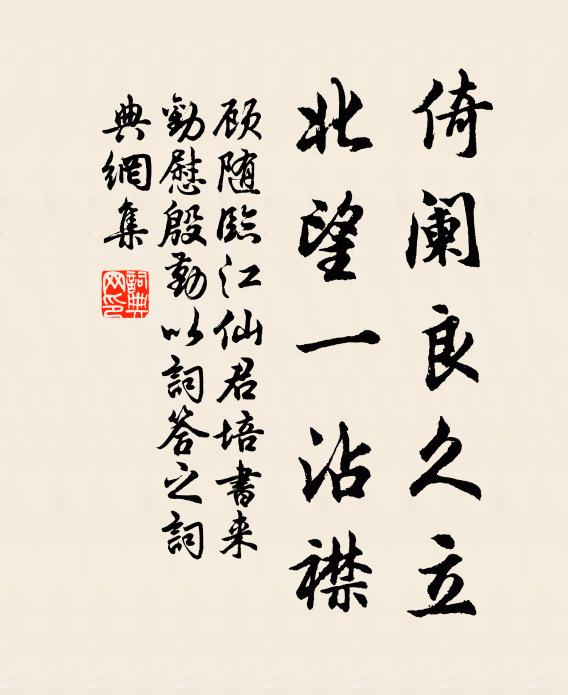 倚阑良久立
北望一沾襟
顾随临江仙君培书来
劝慰殷勤以词答之词
典網集
詞典
网印